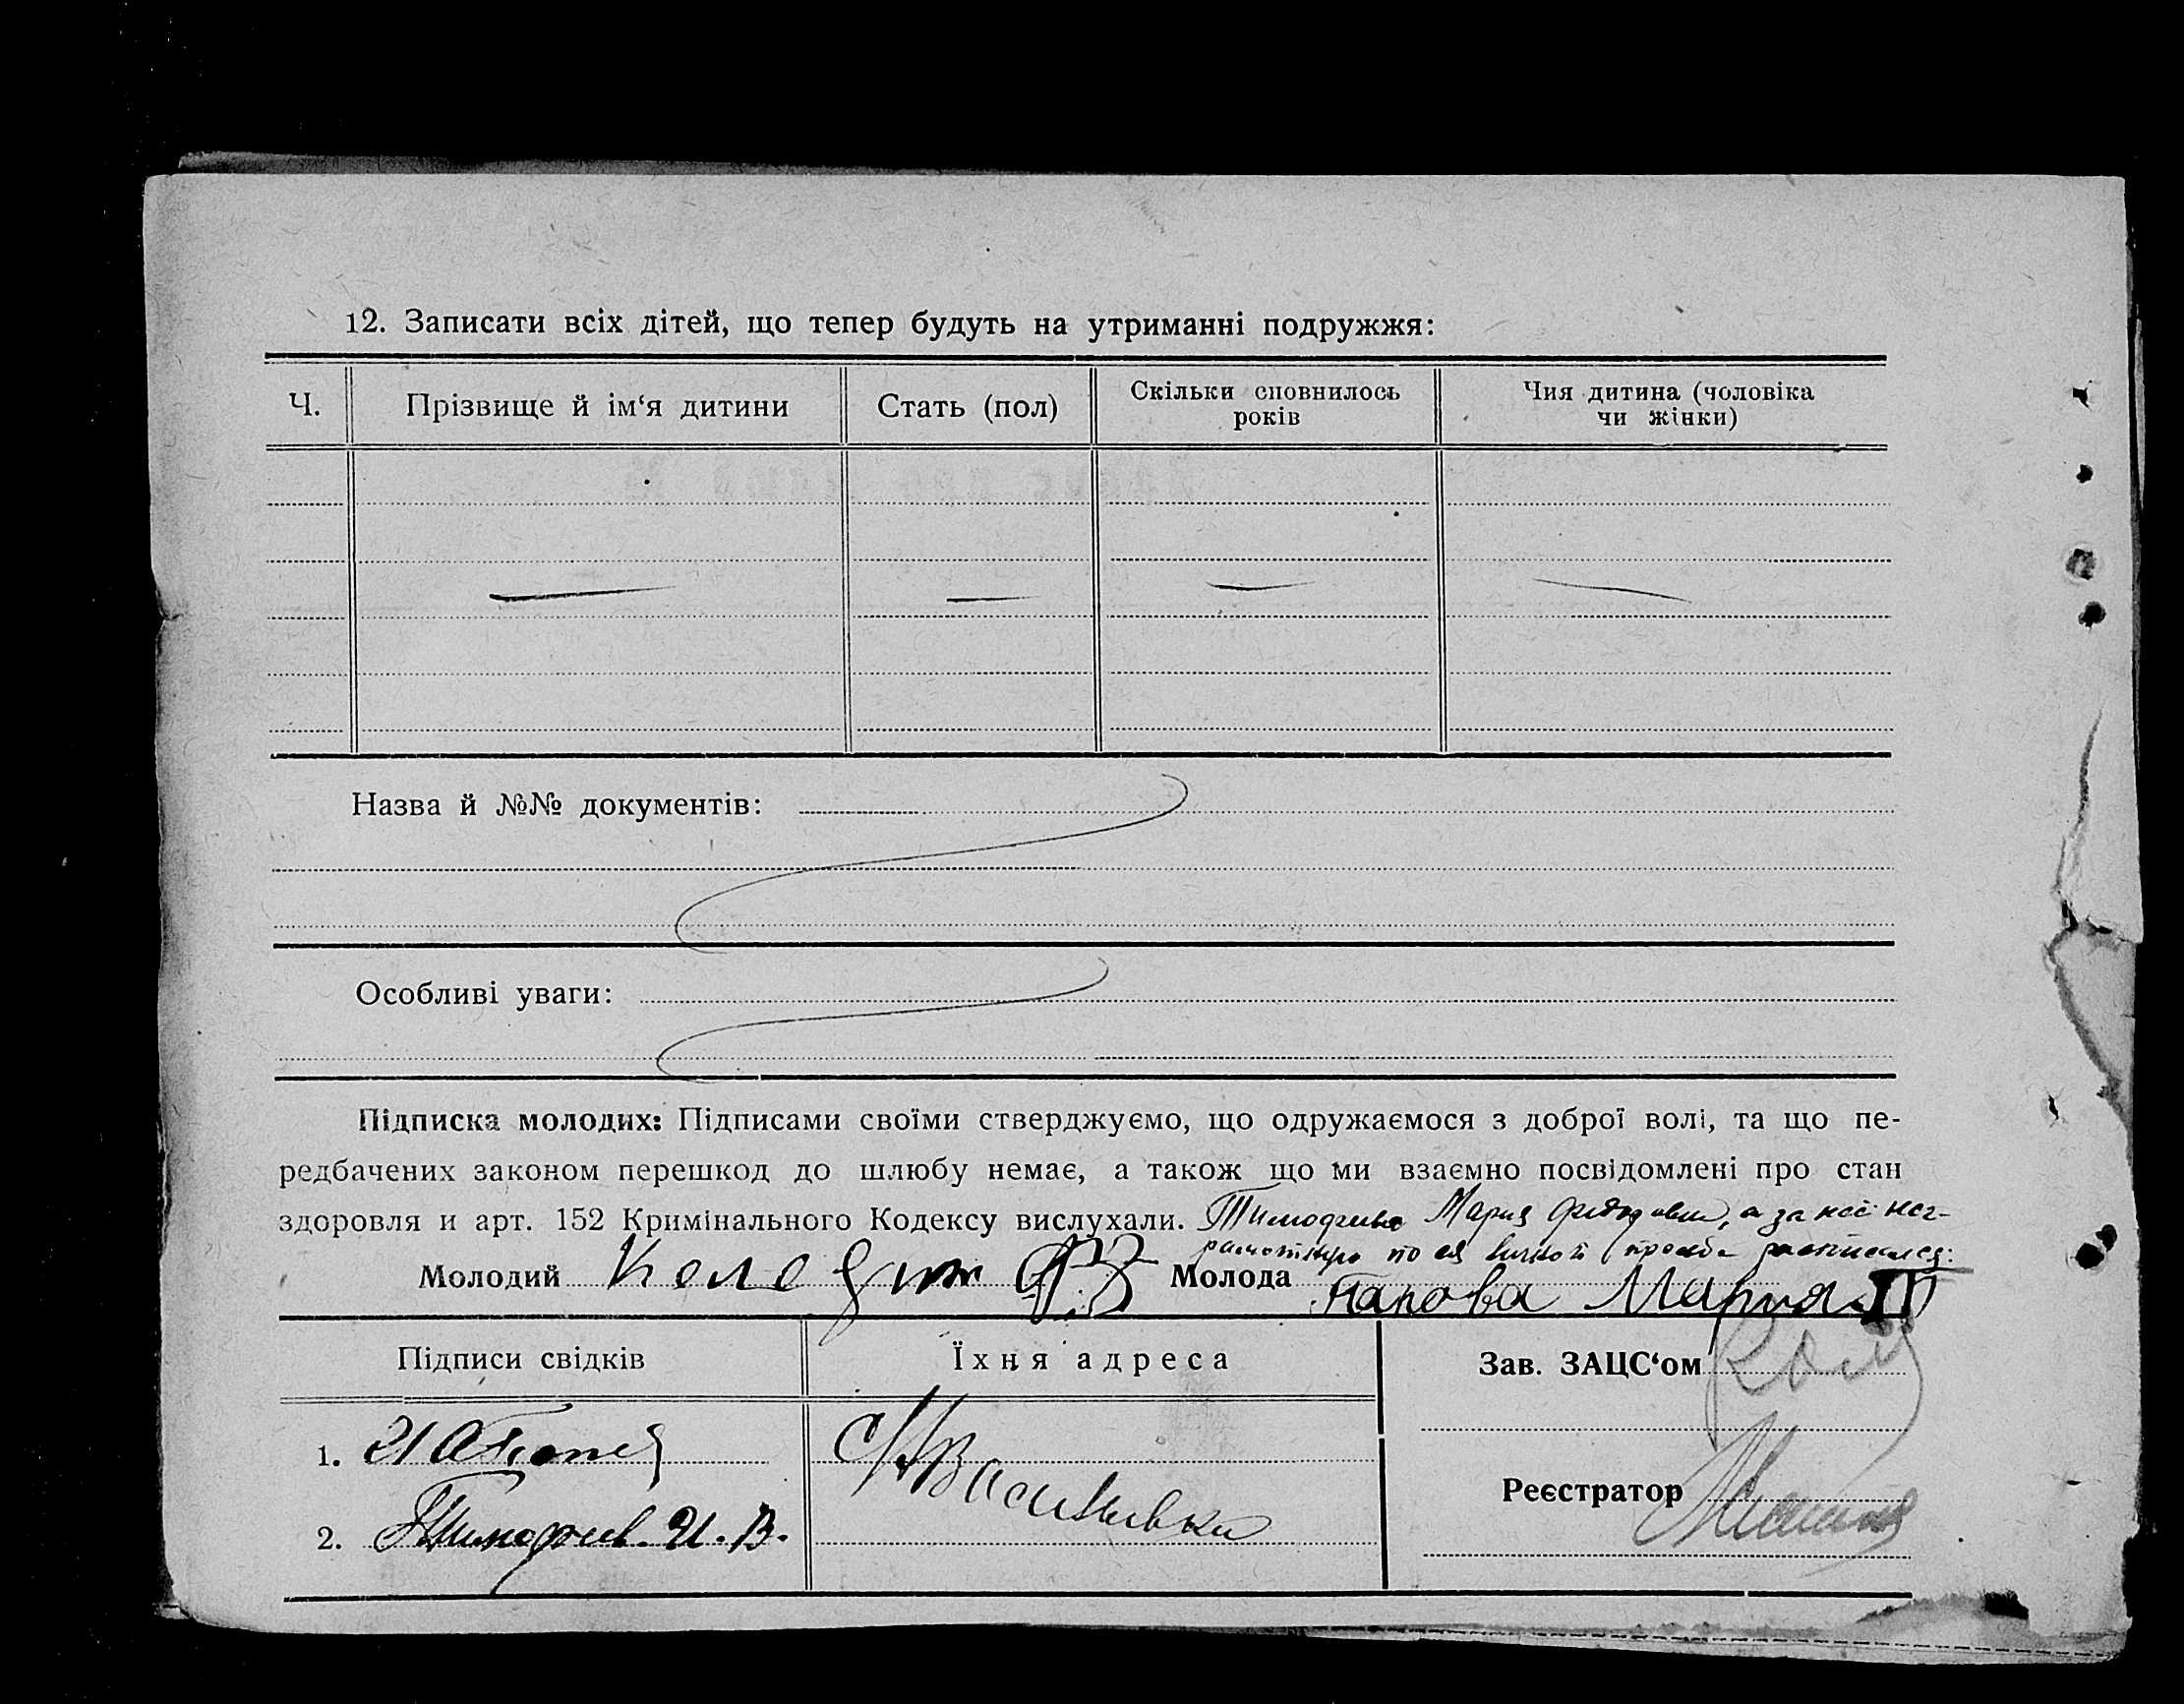 12. Записати всіх дітей, що тепер будуть на утриманні подружжя:
Ч.
Прізвище й ім‘я дитини
Стать (пол)
Скільки сповнилось
років
Чия дитина (чоловіка
чи жінки)
Назва й №№ документів:
Особливі уваги:
Підписка молодих: Підписами своїми стверджуємо, що одружаємося з доброї волі, та що пе-
редбачених законом перешкод до шлюбу немає, а також що ми взаємно посвідомлені про стан
здоровля и арт. 152 Кримінального Кодексу вислухали. Мария а за неё нег-
по ея личной просьбе
Молодий Молода Мария
Підписи свідків
Їхня адреса
Зав. ЗАЦС‘ом
1.
Реєстратор
2. Тимофеев. И. В.